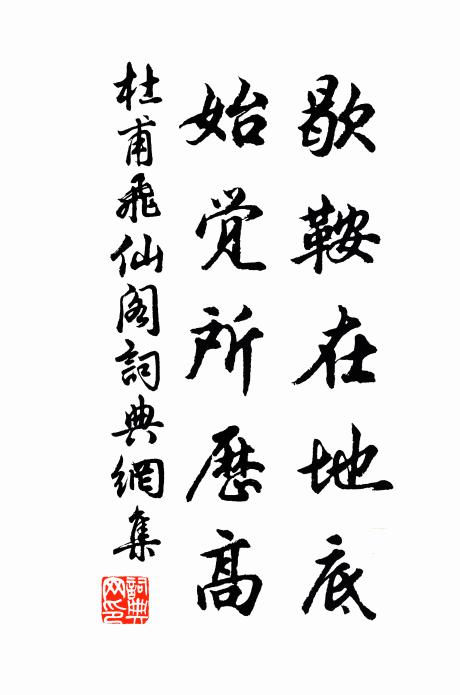 歇鞍在地底
始觉所歷高
杜甫飛仙阁詞典網集
詞典网印